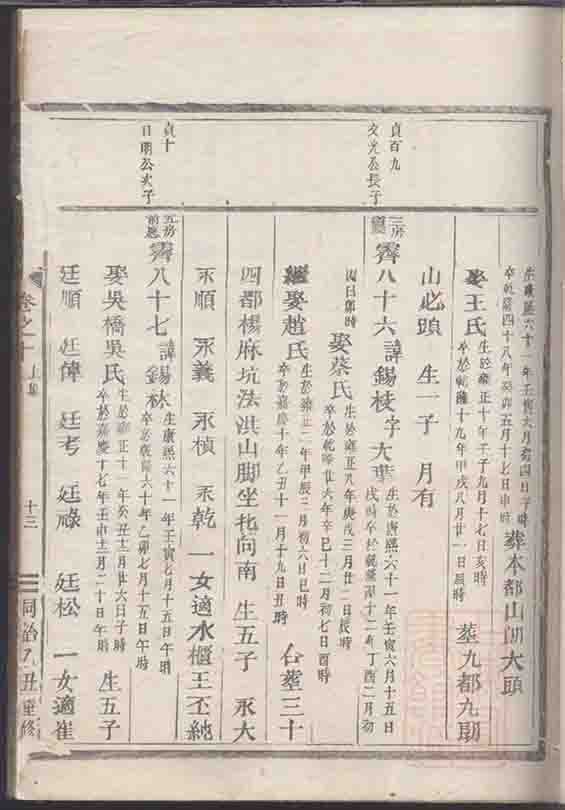 生康熙六十一年壬寅六月初四日子時
卒乾隆四十八年癸卯五月十七日申時
葬本都山門大頭
娶王氏
生於雍正十年壬子九月十七日亥時
卒於乾隆十九年甲戌八月廿一日辰時
葬九都九期
山必頭 生一子 月有
貞百九
文光公長子
三房
霽八十六 諱錫枝字大華
生於康熙六十一年壬寅六月十五日
戌時卒於乾隆四十二年丁酉二月初
四日卯時
娶蔡氏
生於雍正八年庚戌三月廿二日辰時
卒於乾隆廿六年辛巳十二月初七日酉時
繼娶趙氏
生於雍正二年甲辰三月初六日巳時
卒於嘉慶十年乙丑十一月十九日丑時
合塟三十
四都楊麻坑法洪山脚坐北向南 生五子 永大
永順 永義 永楨 永乾 一女適水櫃王丕純
貞十
日明公次子
五房
前恩
霽八十七 諱錫林
生康熙六十一年壬寅七月十五日午時
卒於乾隆六十年乙卯七月十五日午時
娶吳橋吳氏
生於雍正十一年癸丑十二月廿六日子時
卒於嘉慶十七年壬申十二月二十日午時
生五子
廷順 廷偉 廷考 廷祿 廷松 一女適崔
卷之十 上集
十三
同治 丑重修